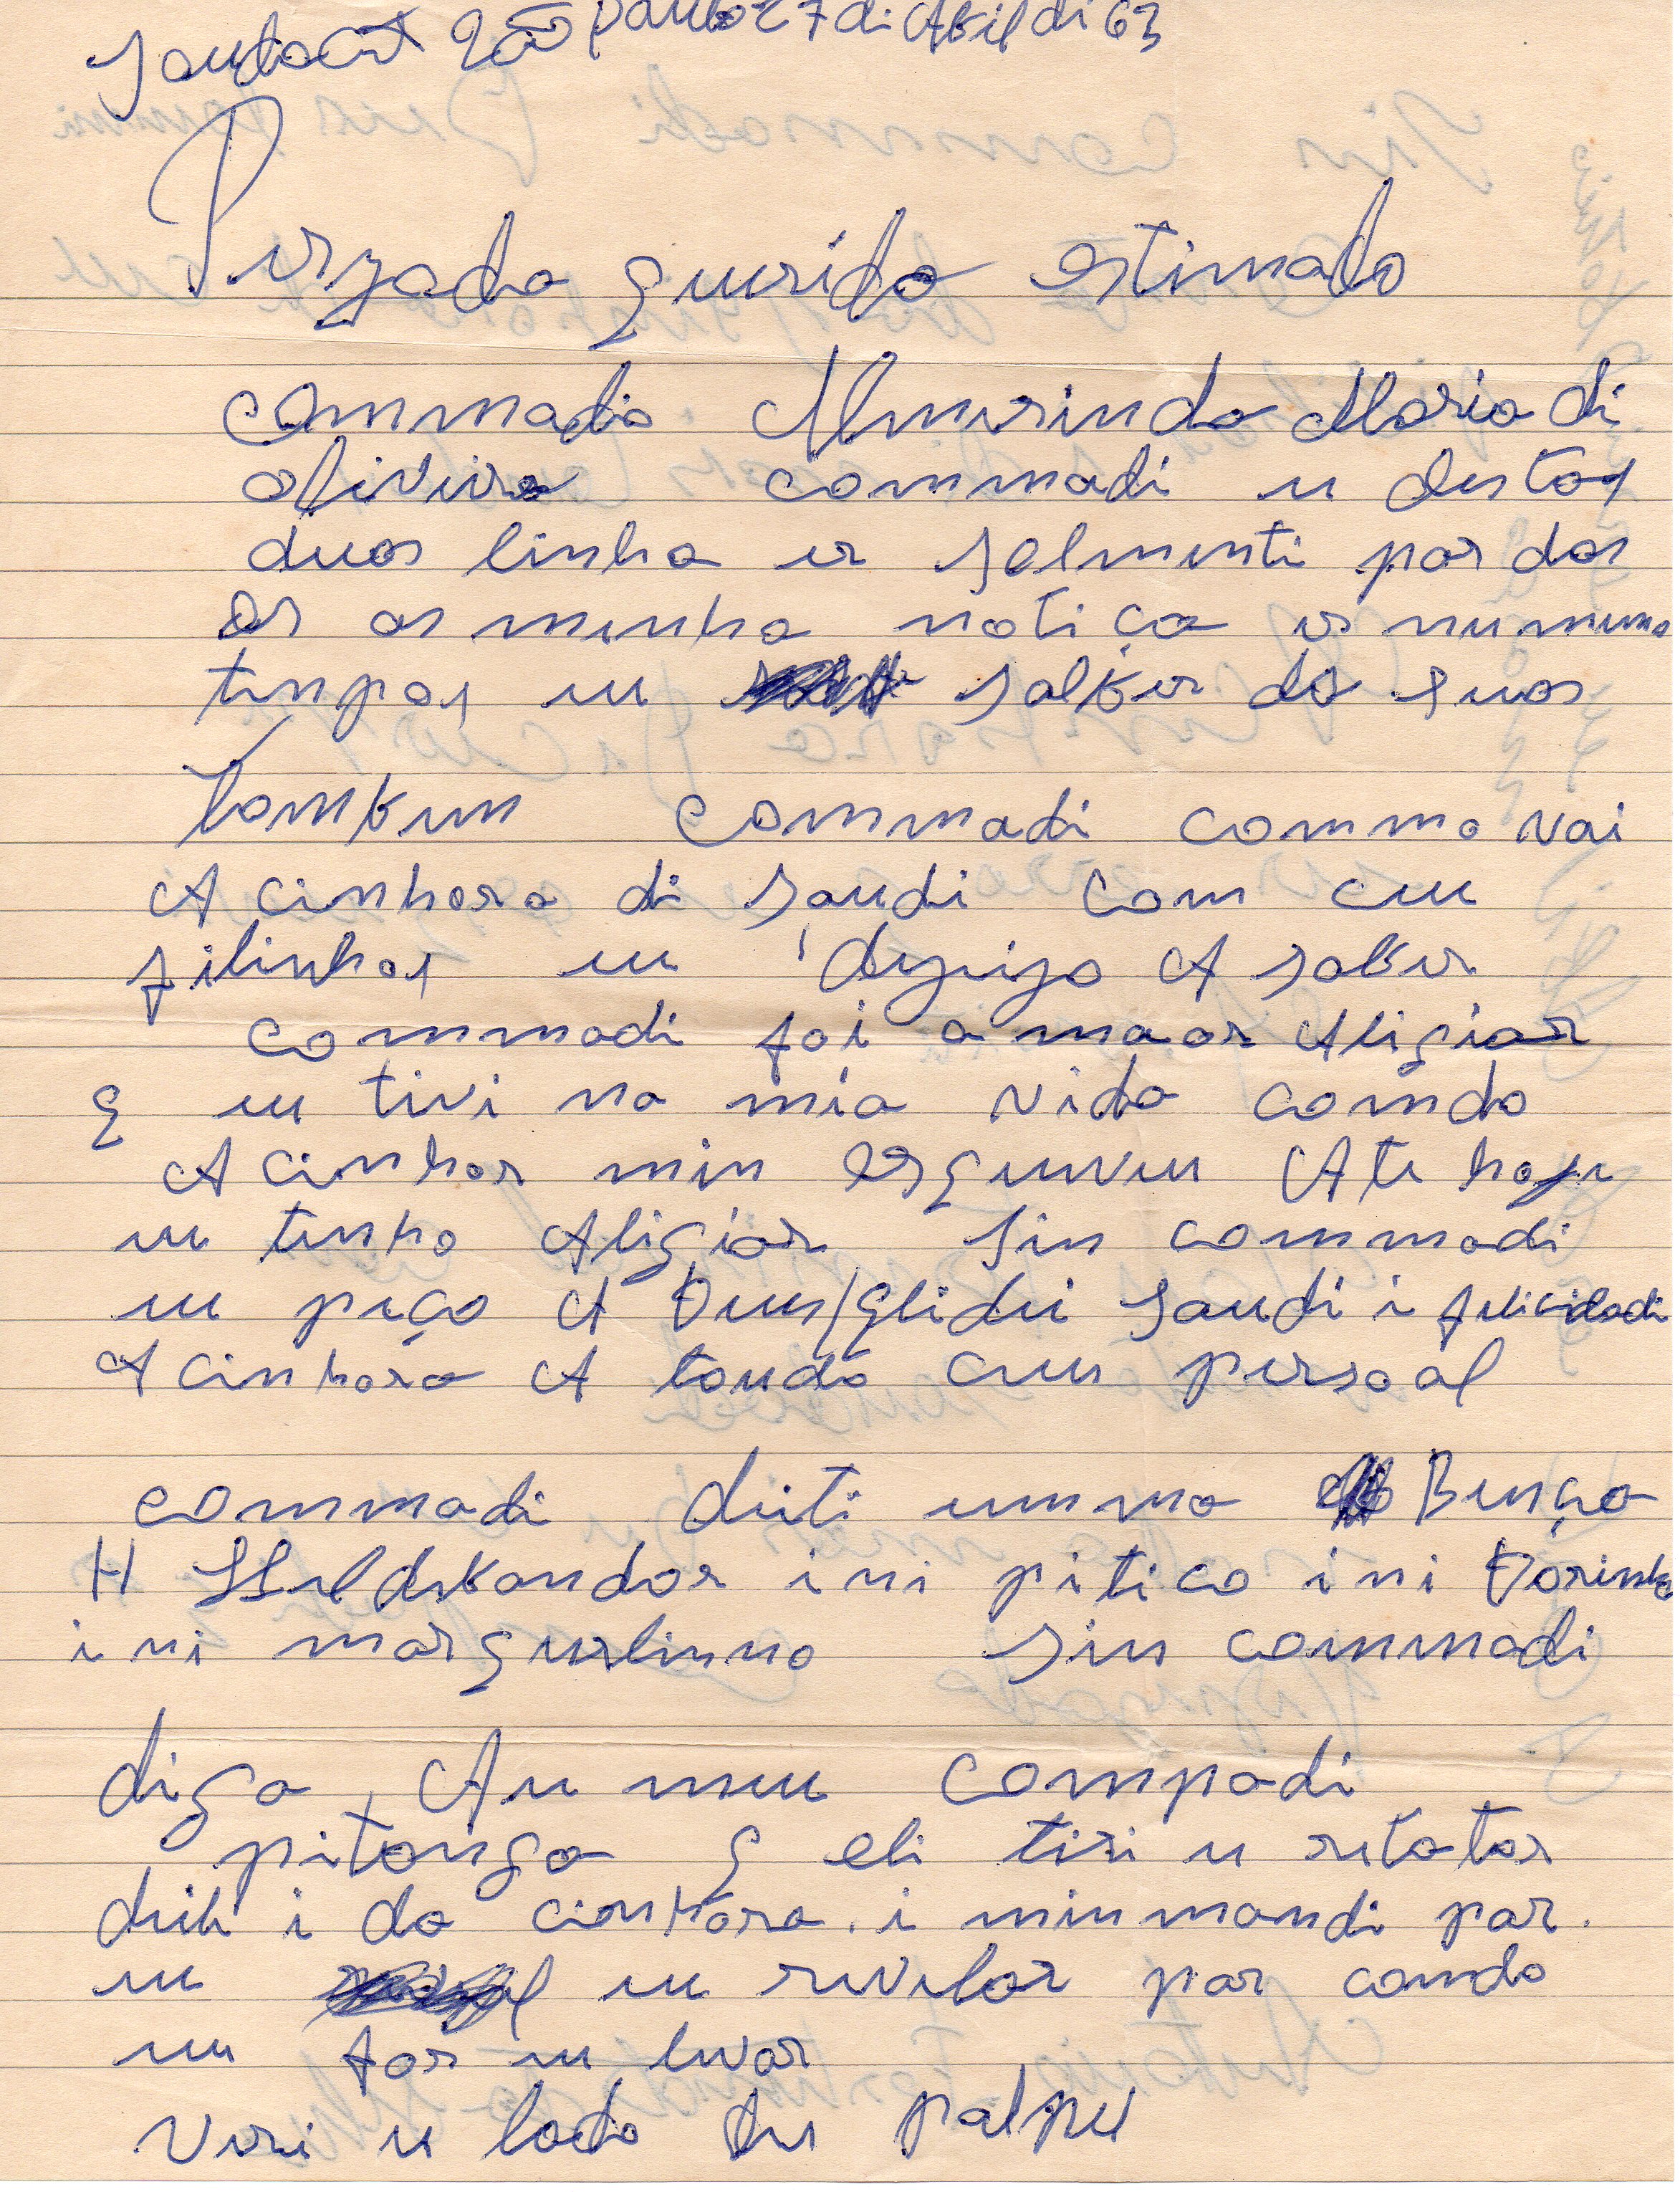 São paulo 27 di Abil di 63
Perzada querida estimado
commadia Almerinda Maria di
oliveira commadi u destas
duas linha er solmenti par dar
as as minha notiça er nu mesmo
tenpos eu salber da suas
Tombem commadi commo vai
A cinhora di saudi com ceu
filinhos eu dezeijo A saber
commadi foi a maor Aligiar
q eu tivi na mia vida coando
A cinhor min esqueveu Ate hoje
eu tenho Aligiar sin commadi
eu peço A Deus q lidei saudi i felicidadi
A cinhora A toudo ceu persoal
commadi deiti umma Bença
i ni pitico i ni Dorinha
i ni marquelinno sin commadi
diga Au meu compadi
pitanga q eli tiri u retatar
deili i da cinhora i min mandi par
eu eu revelar par coando
eu for eu levar
veri u lado deu palpel